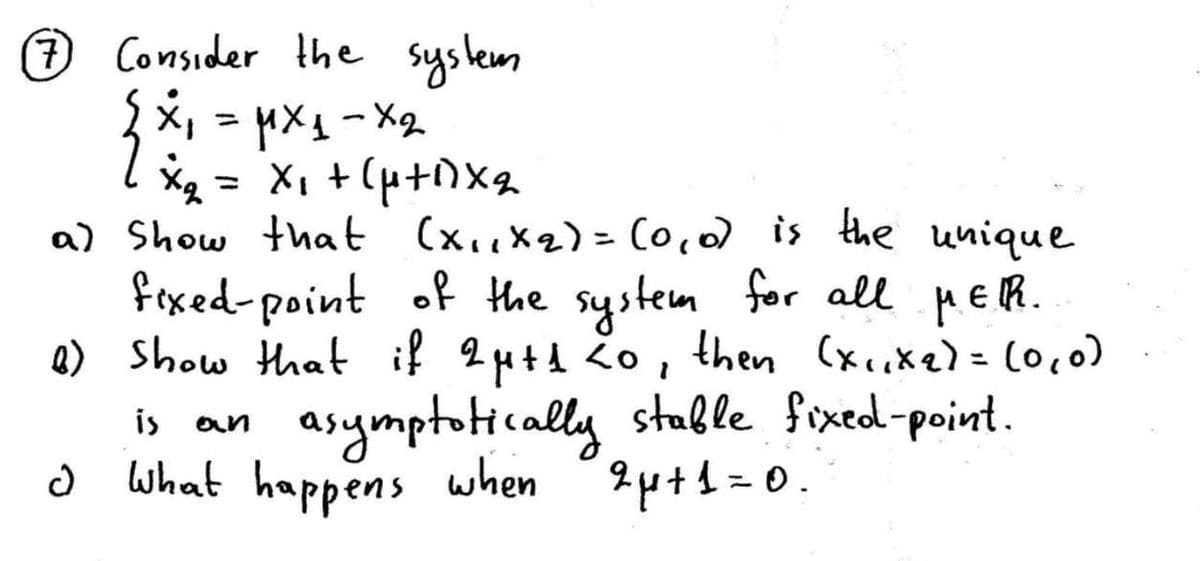 ⑦ Consider the system
{ ẋ₁ = μx₁ - x₂
ẋ₂ = x₁ + (μ+1)x₂
a) Show that (x₁,x₂) = (0,0) is the unique
fixed-point of the system for all μ∈ℝ.
b) Show that if 2μ+1 <0, then (x₁,x₂) = (0,0)
is an asymptotically stable fixed-point.
c) What happens when 2μ+1=0.